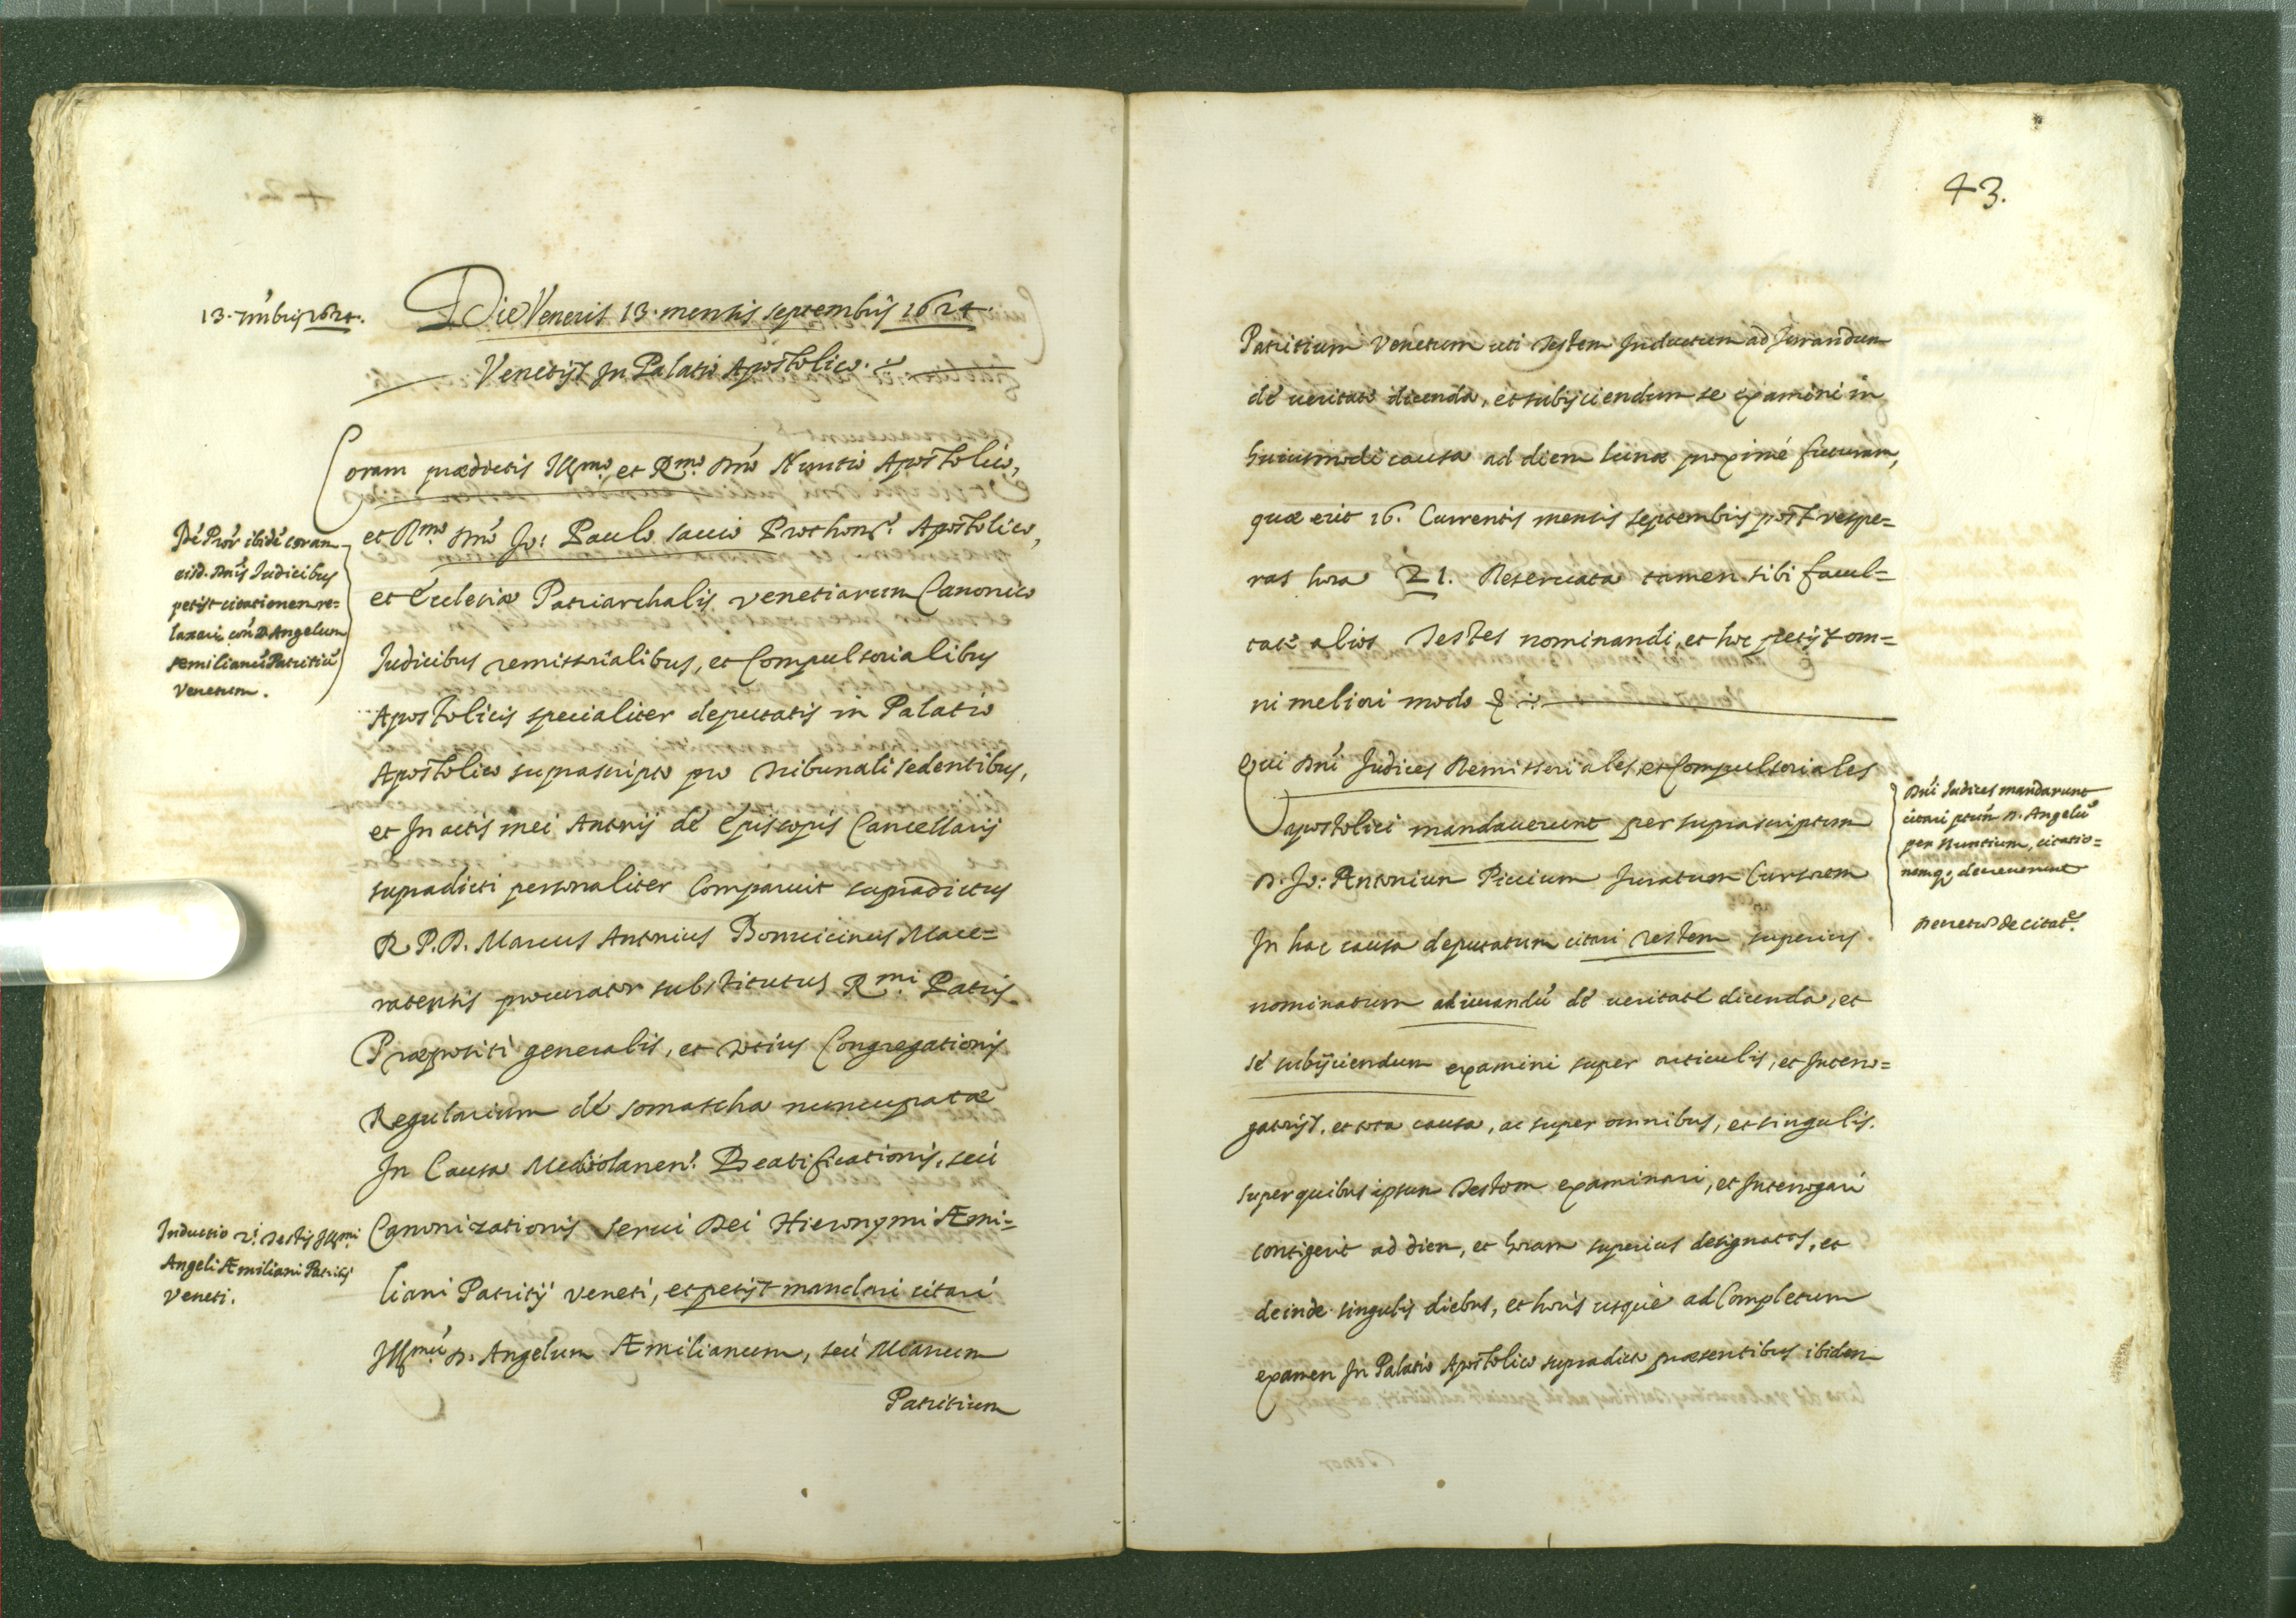 13. 7mbris 1624.
Die Veneris 13. mensis septembris 1624
Venetijs In Palatio Apostolico.
Coram prædictis Illmo, et Rmo. Dno Nuntio Apostolico,
et Rmo Dno Jo: Paulo sauio Prothonro. Apostolico,
et Ecclesiæ Patriarchalis venetiarum Canonico
Judicibus remissorialibus, et Compulsorialibus
Apostolicis specialiter deputatis in Palatio
Apostolico suprascripto pro tribunali sedentibus,
et In actis mei Antonij de Episcopis Cancellarij
supradicti personaliter Comparuit supradictus
R. P. D. Marcus Antonius Bonuicinus Mace=
ratensis procurator substitutus Rmi. Patris
Præpositi generalis, et totius Congregationis
Regularium de somascha nuncupatæ
In Causa Mediolanen. Beatificationis, seu
Canonizationis serui Dei Hieronymi Æmi=
liani Patritij veneti, et petijt mandari citari
Illmu D. Angelum Æmilianum, seu Mianum
Patritium
coram
eisd. Dnis Judicibus
petijt citationem re=
laxari con D Angelum
Æmilianu Patritiu
Venetum.
Inductio testis Illmi.
Angeli Æmiliani Patritij
Veneti.
43.
Patritium Venetum uti testem Inductum ad Jurandum
de ueritate dicenda, et subijciendum se examini in
huiusmodi causa ad diem lunæ proximè futuram,
quæ erit 16. Currentis mensis septembris post vespe=
ras hora 21. Reseruata tamen sibi facul=
tate alios testes nominandi, et hoc petijt om=
ni meliori modo &
Qui Dni Judices Remissoriales, et Compulsoriales
apostolici mandauerunt per suprascriptum
D. Jo: Antonium Piccium Juratum Cursorem
In hac causa deputatum citari testem superius
nominatum ad iurandu de ueritate dicenda, et
se subijciendum examini super articulis, et Interro=
gatorijs, et tota causa, ac super omnibus, et singulis.
super quibus ipsum testem examinari, et Interrogari
contigerit ad diem, et horam superius designatas, et
deinde singulis diebus, et horis usque ad Completum
examen In Palatio Apostolico supradicto præsentibus ibidem
Dni Judices mandarunt
citari D. Angelu
per Nuntium, citatio=
nemq; decreuerunt
Decretu de citate.